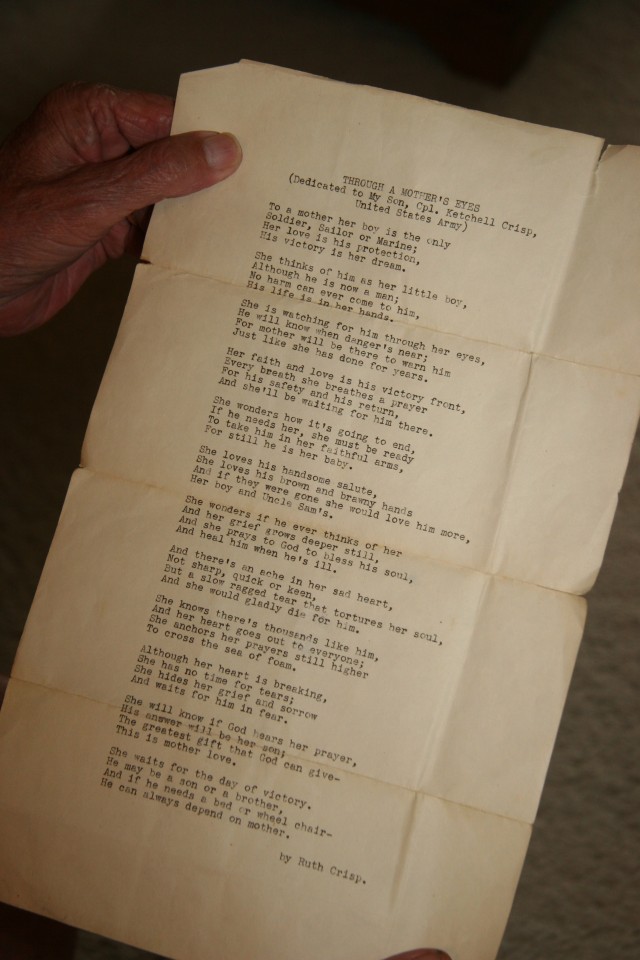 THROUGH A MOTHER'S EYES
(Dedicated to My Son, Cpl. Ketchell Crisp,
United States Army)
To a mother her boy is the only
Soldier, Sailor or Marine;
Her love is his protection,
His victory is her dream.
She thinks of him as her little boy,
Although he is now a man;
No harm can ever come to him,
His life is in her hands.
She is watching for him through her eyes,
He will know when danger's near;
For mother will be there to warn him
Just like she has done for years.
Her faith and love is his victory front,
Every breath she breathes a prayer
For his safety and his return,
And she'll be waiting for him there.
She wonders how it's going to end,
If he needs her, she must be ready
To take him in her faithful arms,
For still he is her baby.
She loves his handsome salute,
She loves his brown and brawny hands
And if they were gone she would love him more,
Her boy and Uncle Sam's.
She wonders if he ever thinks of her
And her grief grows deeper still,
And she prays to God to bless his soul,
And heal him when he's ill.
And there's an ache in her sad heart,
Not sharp, quick or keen,
But a slow ragged tear that tortures her soul,
And she would gladly die for him.
She knows there's thousands like him,
And her heart goes out to everyone;
She anchors her prayers still higher
To cross the sea of foam.
Although her heart is breaking,
She has no time for tears;
She hides her grief and sorrow
And waits for him in fear.
She will know if God hears her prayer,
His answer will be her son;
The greatest gift that God can give-
This is mother love.
She waits for the day of victory.
He may be a son or a brother,
And if he needs a bed or wheel chair-
He can always depend on mother.
by Ruth Crisp.